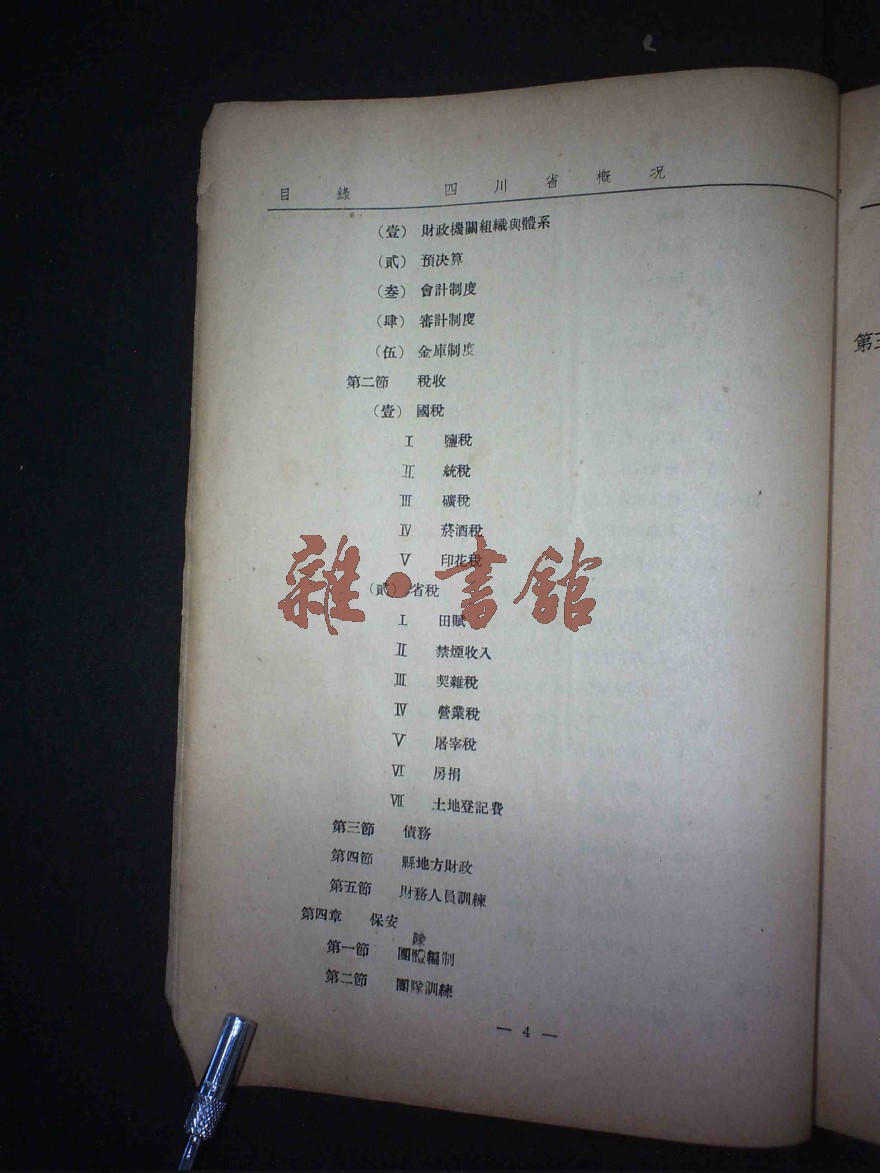 目錄 四川省概況
(壹) 財政機關組織與體系
(貳) 預決算
(叁) 會計制度
(肆) 審計制度
(伍) 金庫制度
第二節 稅收
(壹) 國稅
Ⅰ 鹽稅
Ⅱ 統稅
Ⅲ 礦稅
Ⅳ 菸酒稅
Ⅴ 印花稅
(貳) 省稅
Ⅰ 田賦
Ⅱ 禁煙收入
Ⅲ 契雜稅
Ⅳ 營業稅
Ⅴ 屠宰稅
Ⅵ 房捐
Ⅶ 土地登記費
第三節 債務
第四節 縣地方財政
第五節 財務人員訓練
第四章 保安
隊
第一節 團體編制
第二節 團隊訓練
— 4 —
雜·書館
第三